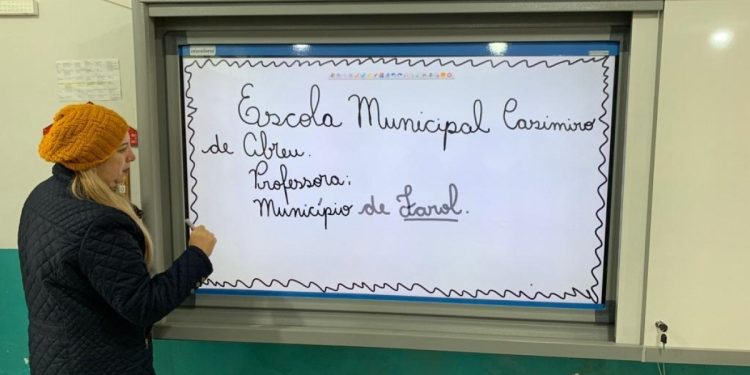 Escola Municipal Casimiro
de Abreu.
Professora:
Município de Farol.